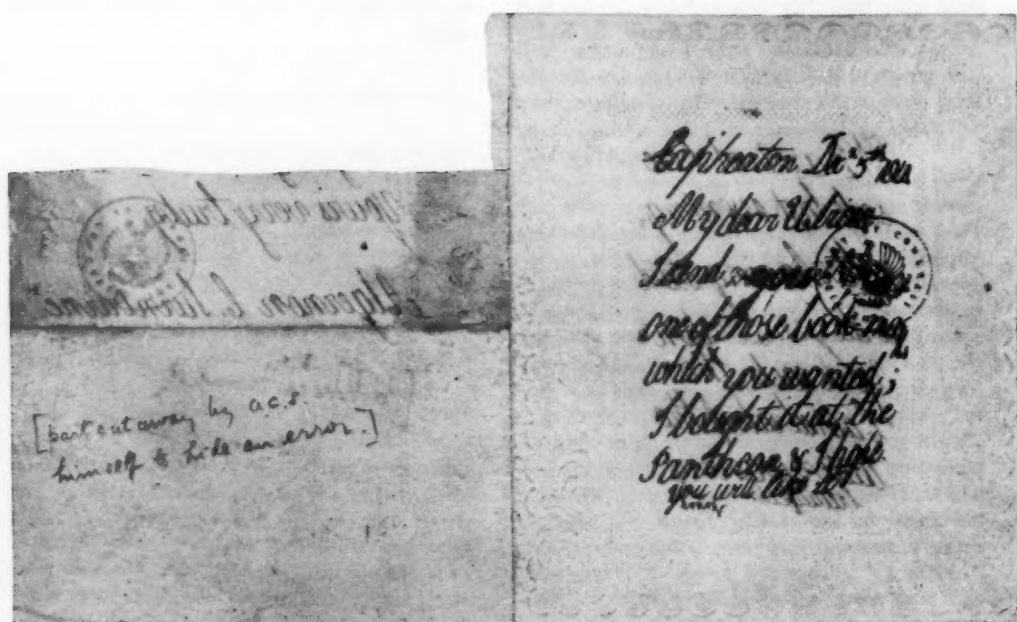 Yours very truly
Algernon C. Swinburne
[part cut away by A.C.S.
himself to hide an error.]
Capheaton Dec 5th
My dear Ulric
I send
one of those book-
which you wanted;
I bought it at the
Pantheon & I hope
you will like it